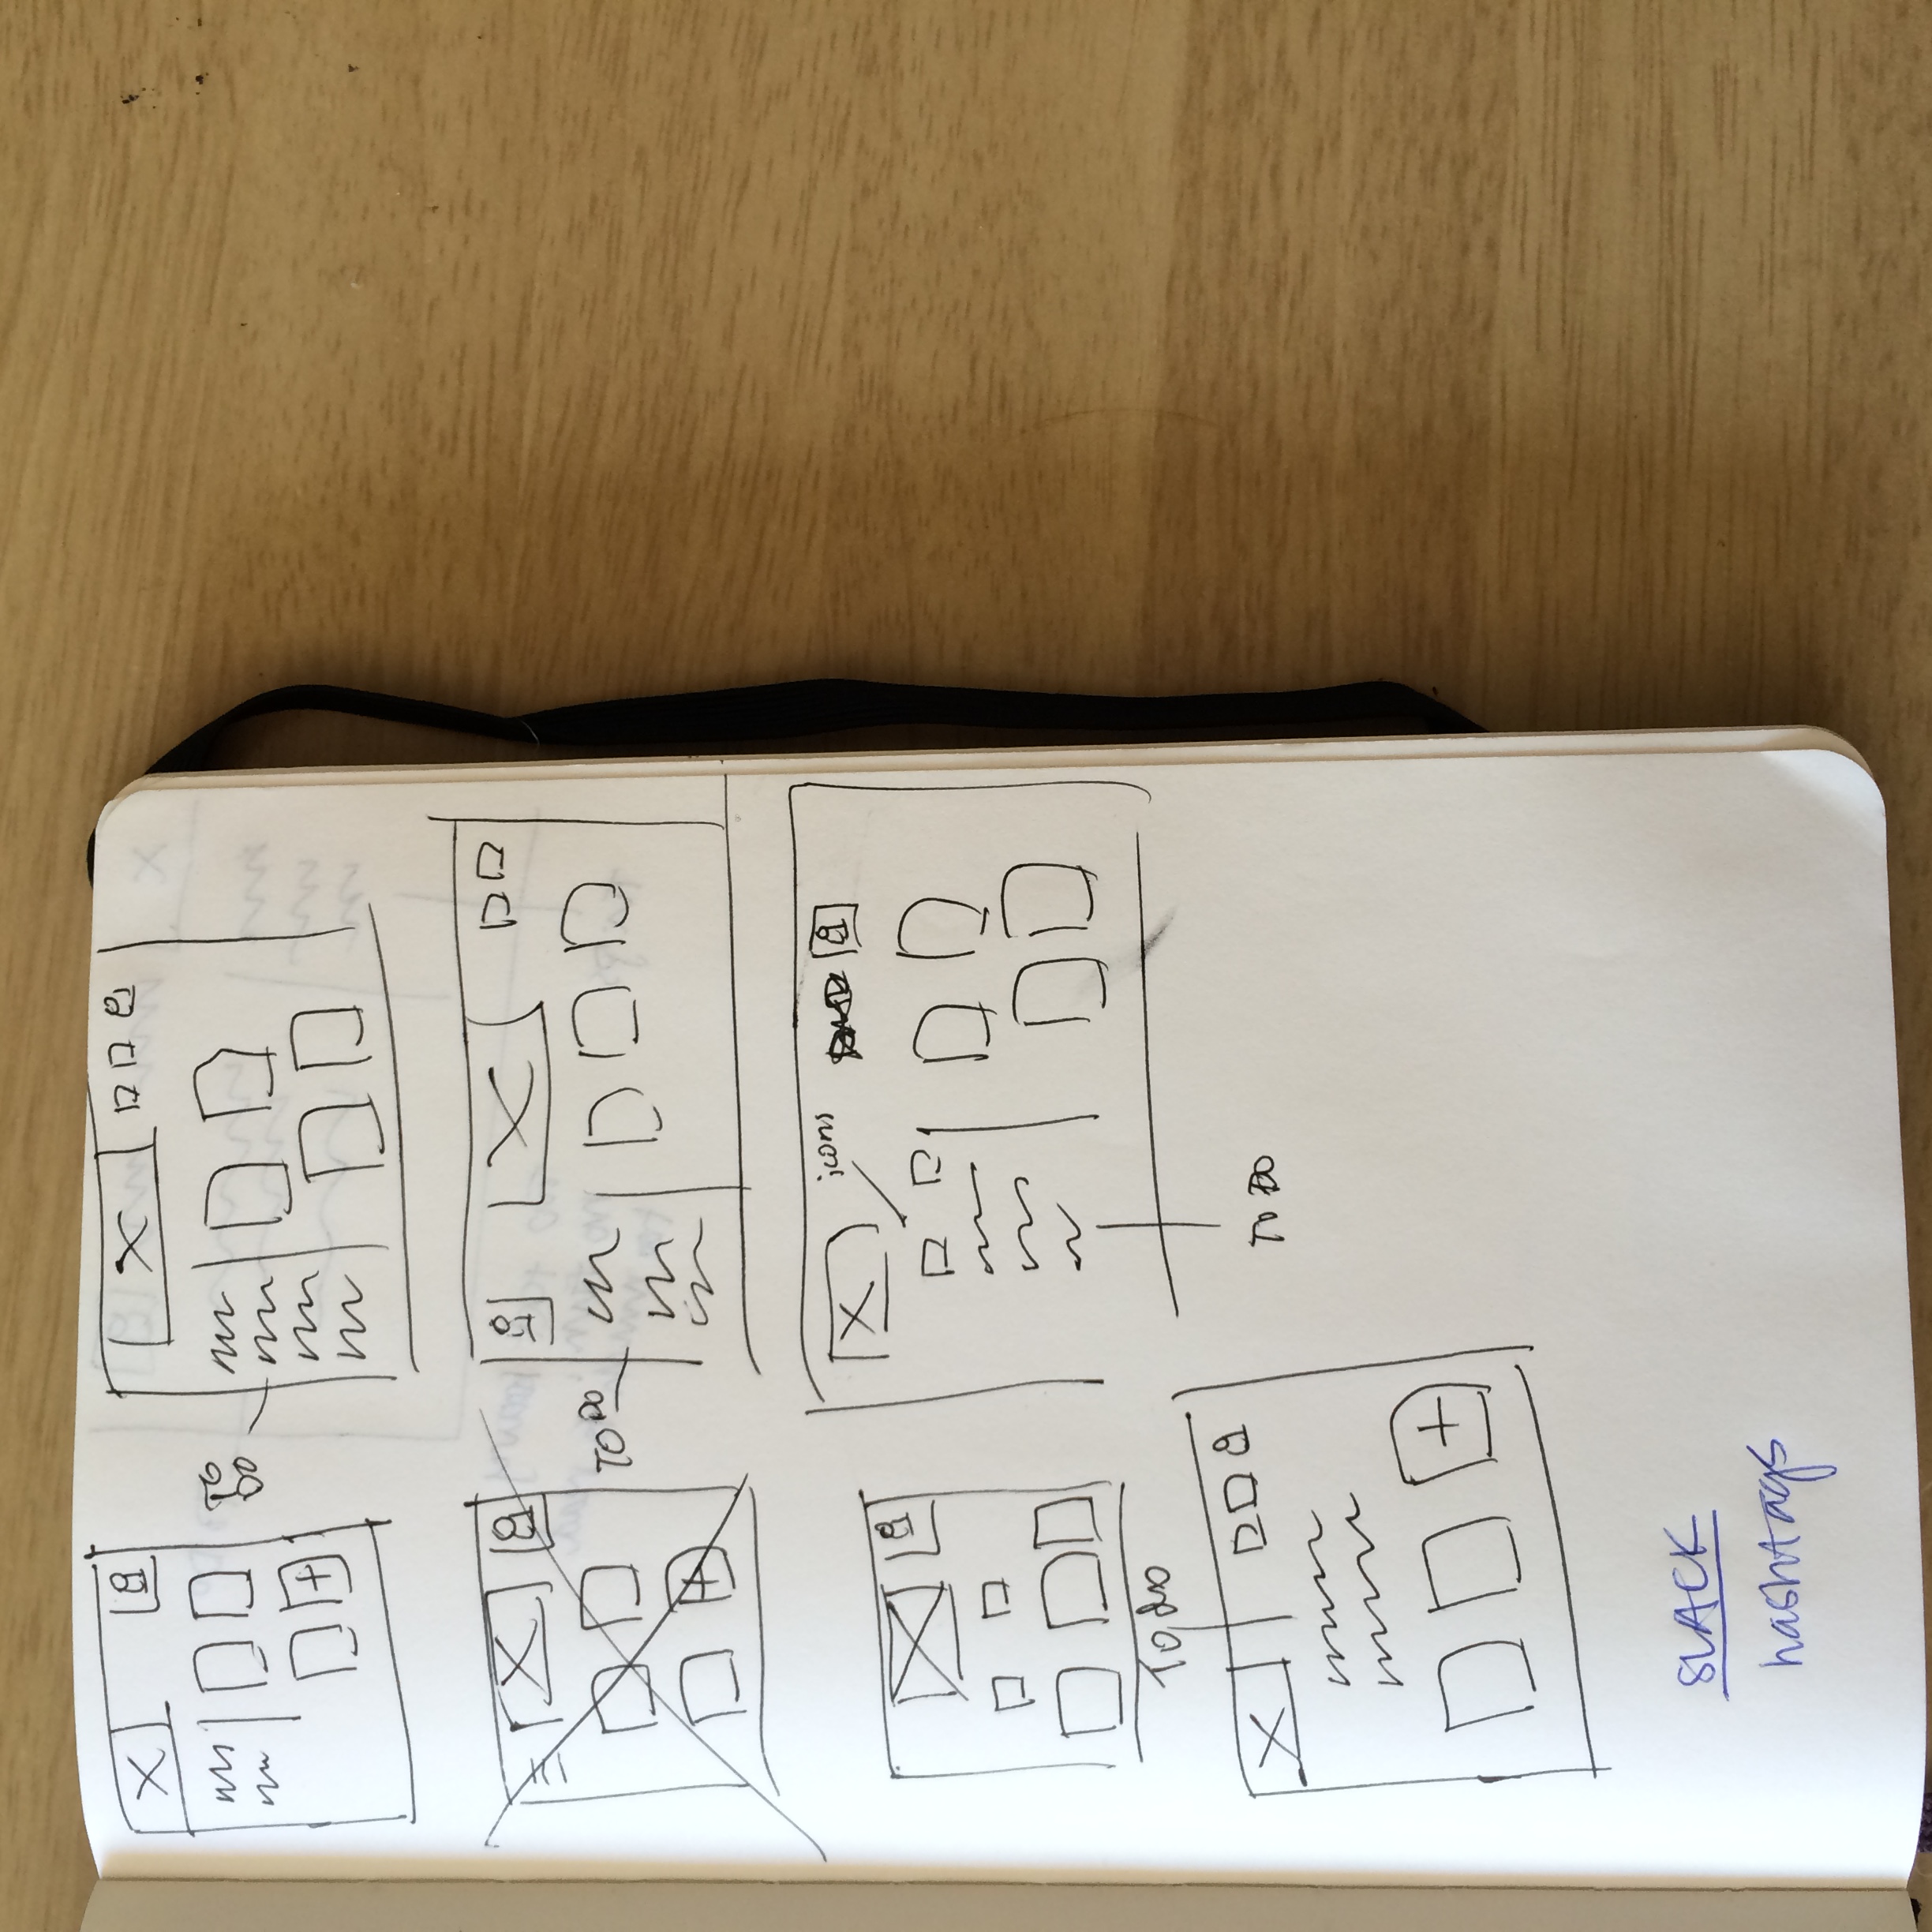 TO
DO
TO DO
icons
To do
TO DO
SLACK
hashtags